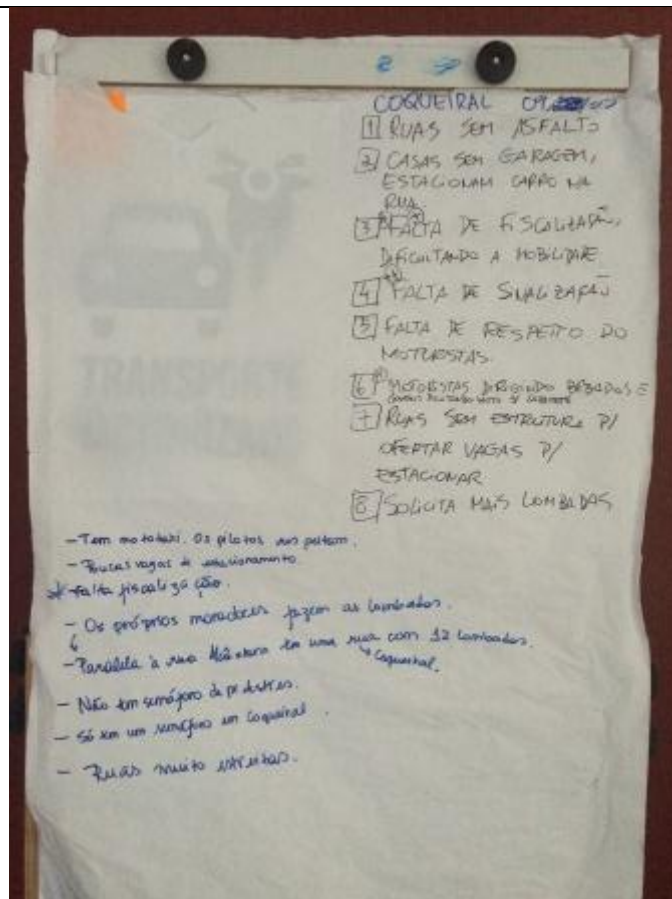 COQUEIRAL 09
1 RUAS SEM ASFALTO
2 CASAS SEM GARAGEM,
ESTACIONAM CARRO NA
RUA
3 FALTA DE FISCALIZAÇÃO,
DIFICULTANDO A MOBILIDADE
4 FALTA DE SINALIZAÇÃO
5 FALTA DE RESPEITO DO
MOTORISTAS.
6 MOTORISTAS DIRIGINDO BÊBADOS E
7 RUAS SEM ESTRUTURA P/
OFERTAR VAGAS P/
ESTACIONAR
8 SOLICITA MAIS LOMBADAS
TRANSPORTE
- Tem mototaxi. Os pilotos
- Poucas vagas de estacionamento
* Falta fiscalização.
- Os próprios moradores fazem as lombadas.
- Paralela à rua tem uma rua com 12 lombadas.
Coqueiral.
- Não tem semáforo de pedestres.
- Só tem um semáforo em Coqueiral.
- Ruas muito estreitas.